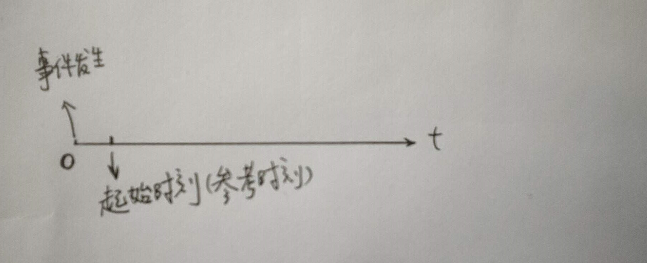 事件发生
t
0
起始时刻(参考时刻)